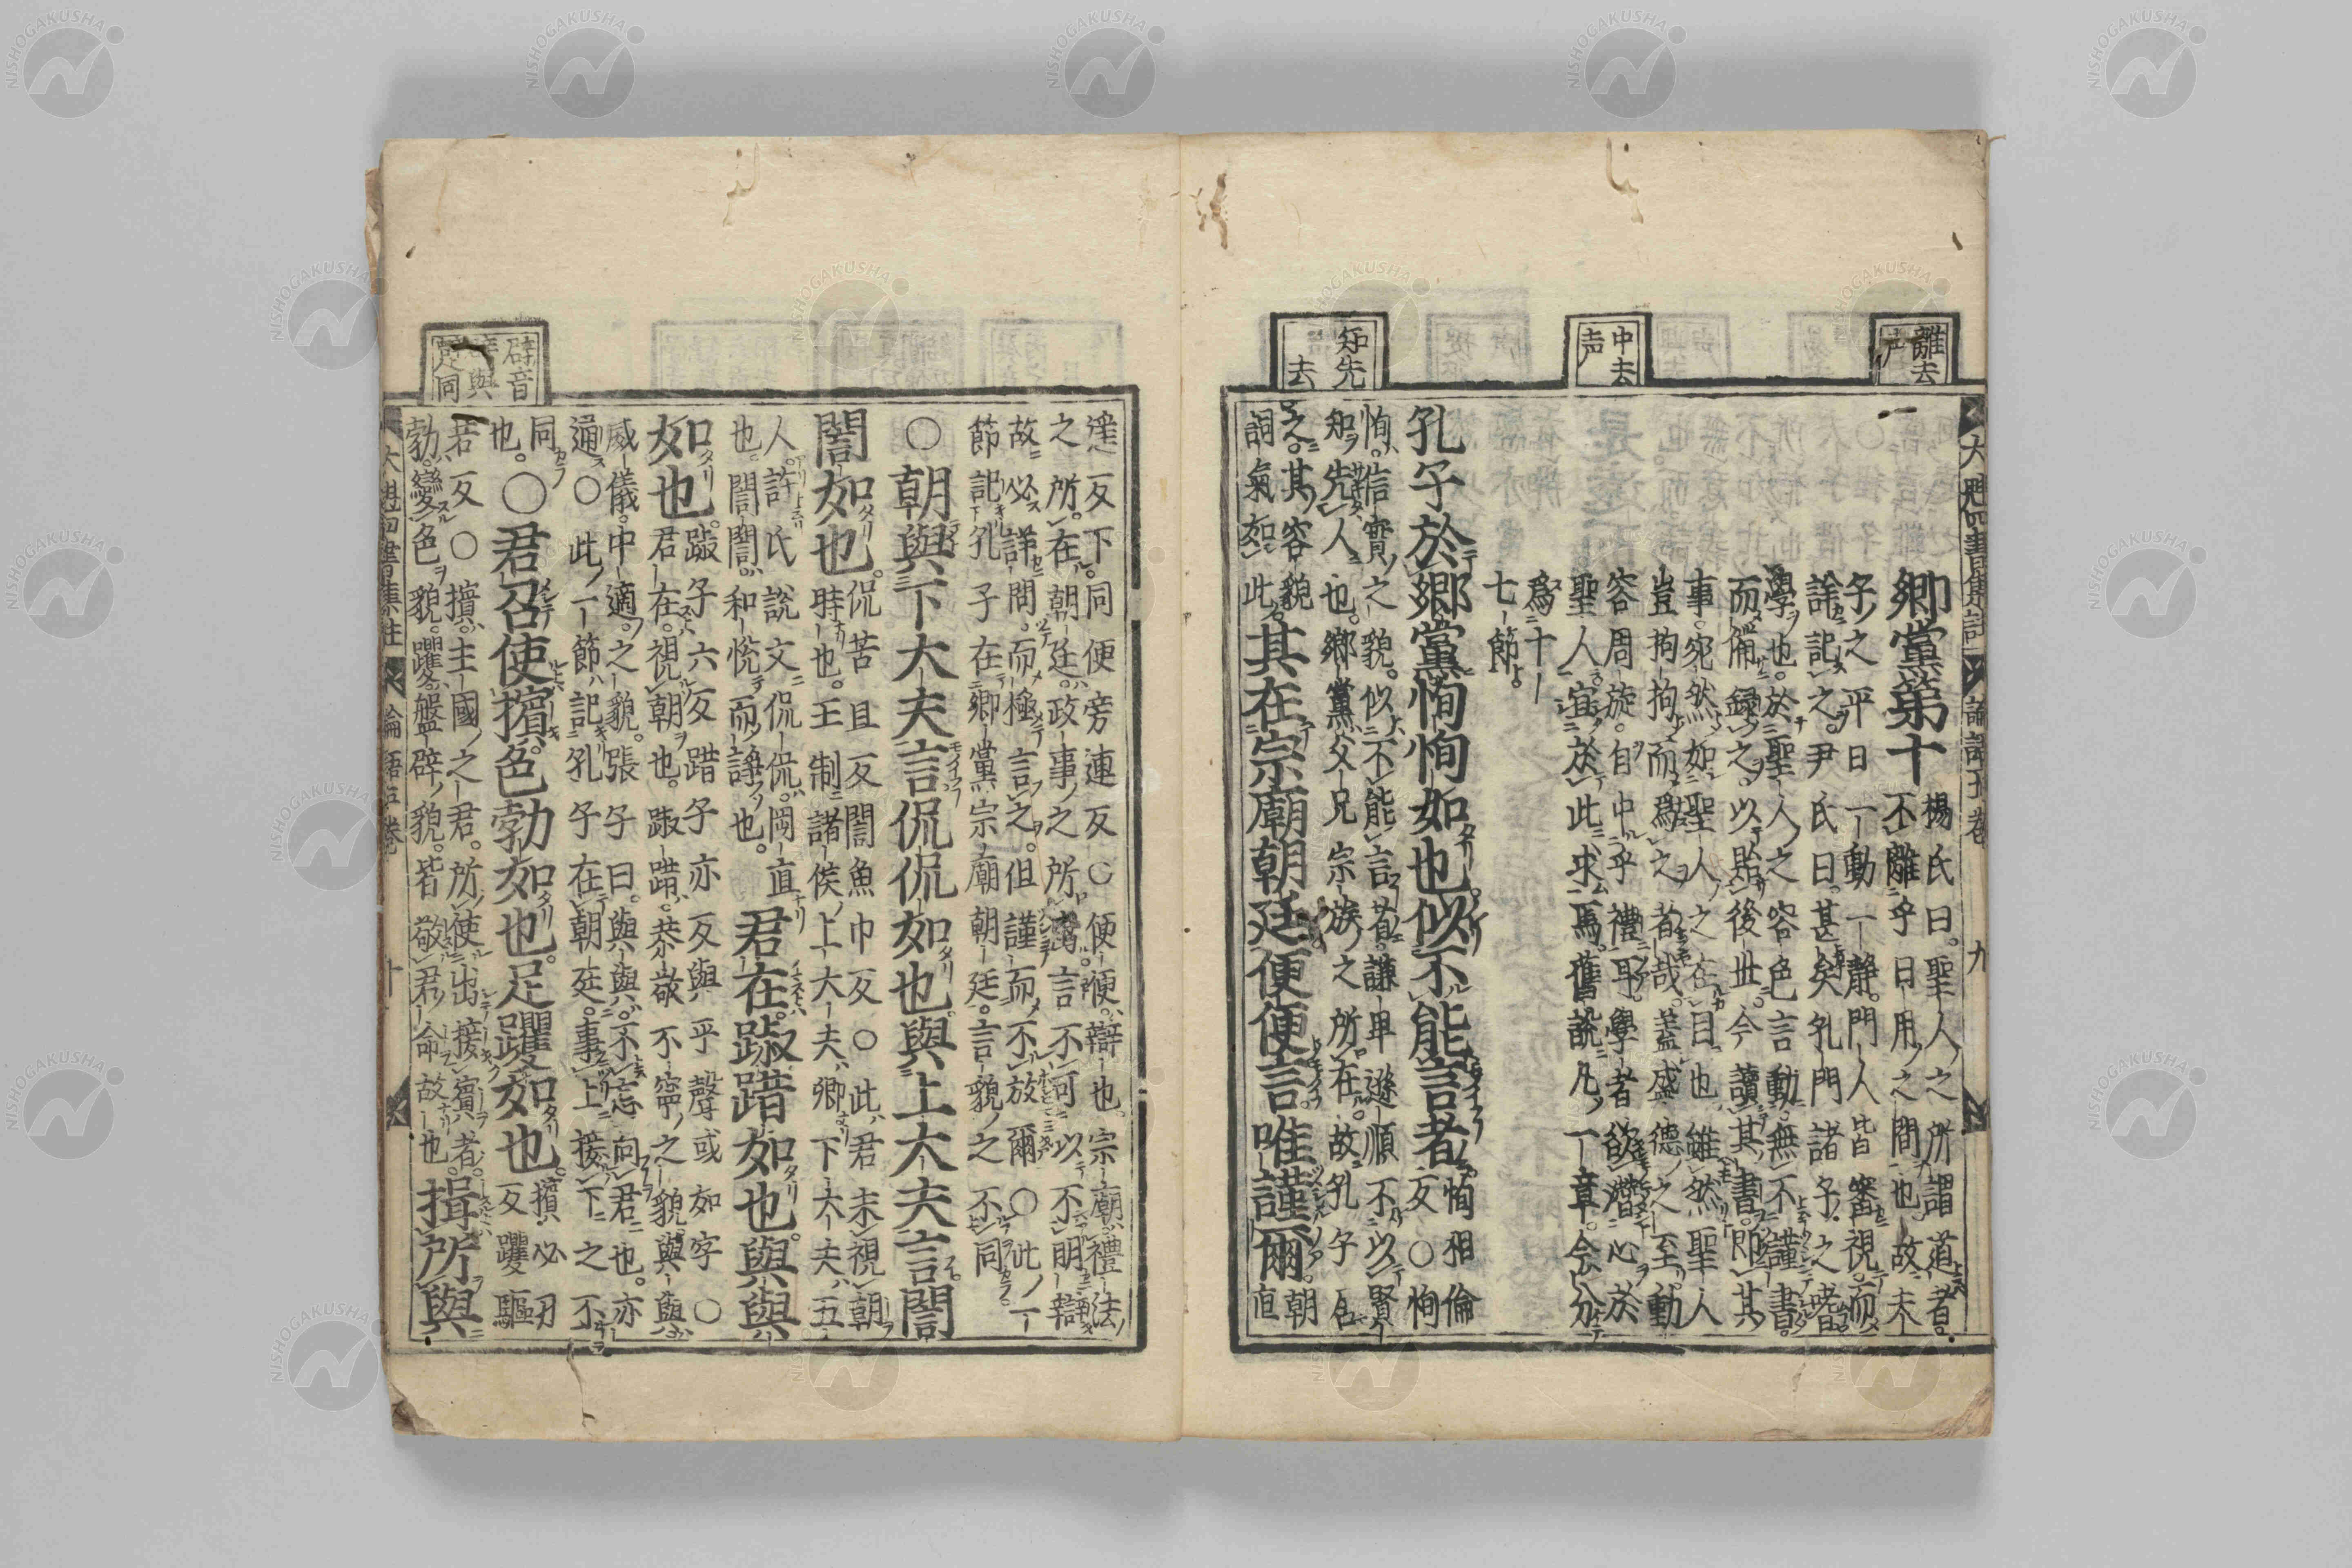 離去声
中去声
知先去
大魁四書集註 論語五卷 九
鄉黨第十
楊氏曰。聖人之所謂道者。
不離乎日用之間也。故夫
子之平日一動一靜。門人皆審視而
詳記之。尹氏曰。甚矣孔門諸子之嗜
學也。於聖人之容色言動無不謹書。
而備錄之。以貽後世。今讀其書。即其
事。宛然如聖人之在目也。雖然聖人
豈拘拘而爲之者哉。蓋盛德之至動
容周旋。自中乎禮耳。學者欲潛心於
聖人。宜於此求焉。舊說凡一章。今分
爲十
七節。
孔子於鄉黨恂恂如也。似不能言者
恂相倫
反○恂
恂。信實之貌。似不能言者。謙卑遜順不以賢
知先人也。鄉黨父兄宗族之所在。故孔子居
之。其容貌
詞氣如此。
其在宗廟朝廷便便言。唯謹爾。
朝
直
遙反下同便旁連反○便便辯也。宗廟禮法
之所。在朝廷政事之所出言不可以不明辯
故必詳問。而極言之。但謹而不放爾○此一
節記孔子在鄉黨宗廟朝廷。言貌之不同。
○朝與下大夫言侃侃如也。與上大夫言誾
誾如也。
侃苦旦反誾魚巾反○此君未視朝
時也。王制諸侯上大夫卿下大夫五
人。許氏說文侃侃。剛直
也。誾誾和悅而諍也。
君在。踧踖如也。與與
如也。
踧子六反踖子亦反與平聲或如字○
君在。視朝也。踧踖。恭敬不寧之貌。與與
威儀。中適之貌。張子曰。與與。不忘向君也。亦
通○此一節。記孔子在朝廷。事上接下之不
同
也。
○君召使擯。色勃如也。足躩如也。
擯必刃
反躩驅
若反○擯。主國之君。所使出接賓者。
勃。變色貌。躩。盤辟貌。皆敬君命故也。
揖所與
辟音
辟與
躄同
大魁四書集註 論語五卷 十